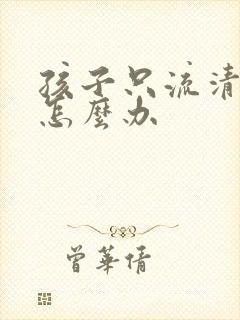 孩子只流清
怎麼办
曾華倩